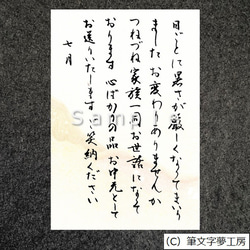 日ごとに暑さが厳しくなってまいり
ました お変わりありませんか
つねづね家族一同お世話になって
おります 心ばかりの品 お中元として
お送りいたします ご笑納ください
七月
Sample
(C) 筆文字夢工房